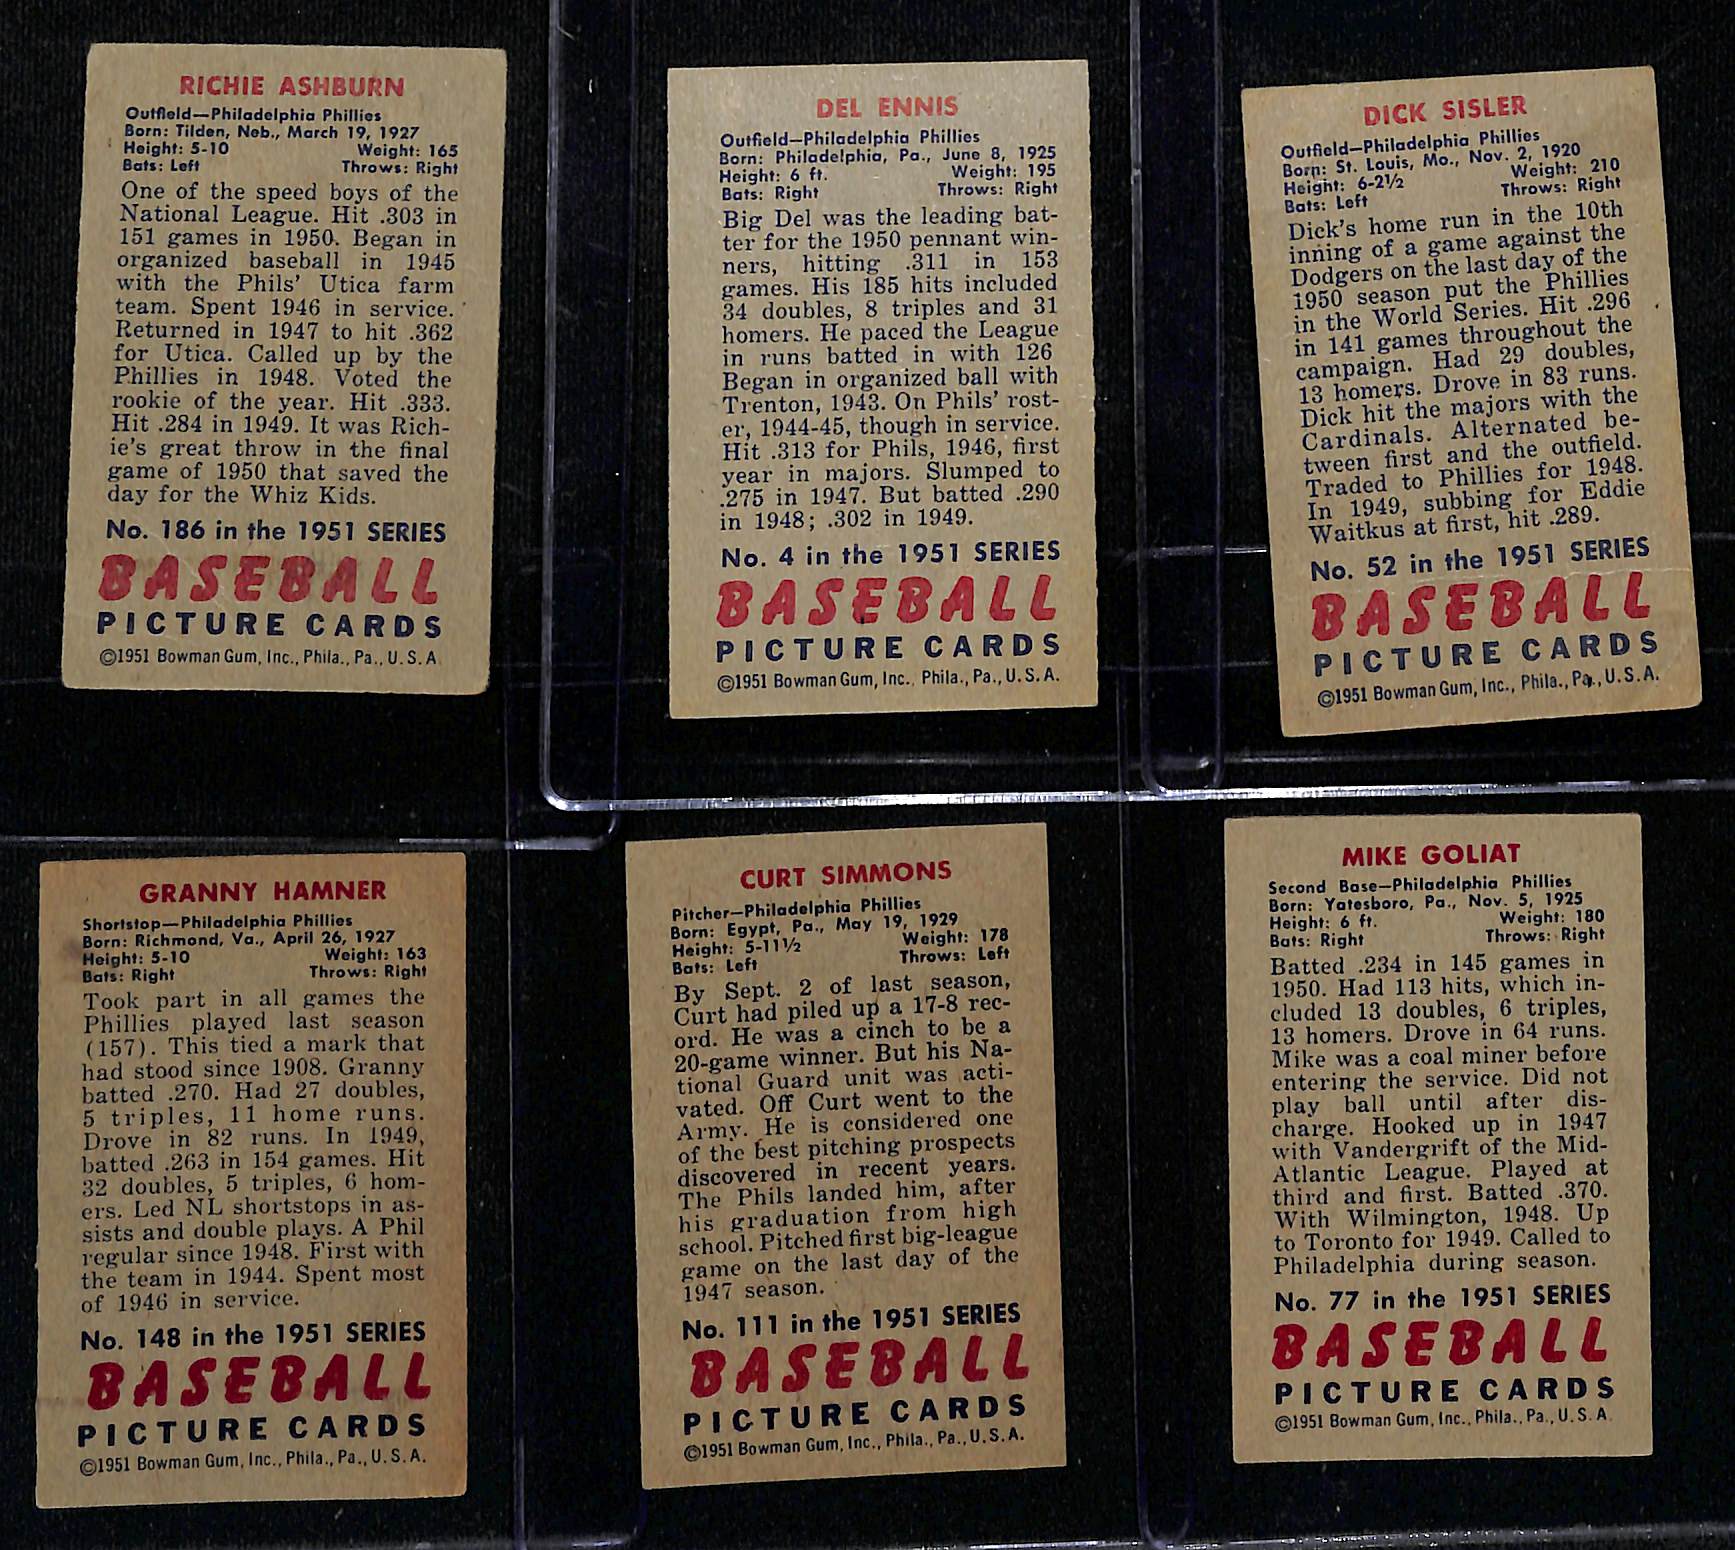 RICHIE ASHBURN
Outfield—Philadelphia Phillies
Born: Tilden, Neb., March 19, 1927
Height: 5-10 Weight: 165
Bats: Left Throws: Right
One of the speed boys of the
National League. Hit .303 in
151 games in 1950. Began in
organized baseball in 1945
with the Phils' Utica farm
team. Spent 1946 in service.
Returned in 1947 to hit .362
for Utica. Called up by the
Phillies in 1948. Voted the
rookie of the year. Hit .333.
Hit .284 in 1949. It was Rich-
ie's great throw in the final
game of 1950 that saved the
day for the Whiz Kids.
No. 186 in the 1951 SERIES
BASEBALL
PICTURE CARDS
©1951 Bowman Gum, Inc., Phila., Pa., U.S.A
DEL ENNIS
Outfield—Philadelphia Phillies
Born: Philadelphia, Pa., June 8, 1925
Height: 6 ft. Weight: 195
Bats: Right Throws: Right
Big Del was the leading bat-
ter for the 1950 pennant win-
ners, hitting .311 in 153
games. His 185 hits included
34 doubles, 8 triples and 31
homers. He paced the League
in runs batted in with 126
Began in organized ball with
Trenton, 1943. On Phils' rost-
er, 1944-45, though in service.
Hit .313 for Phils, 1946, first
year in majors. Slumped to
.275 in 1947. But batted .290
in 1948; .302 in 1949.
No. 4 in the 1951 SERIES
BASEBALL
PICTURE CARDS
©1951 Bowman Gum, Inc., Phila., Pa., U.S.A.
DICK SISLER
Outfield—Philadelphia Phillies
Born: St. Louis, Mo., Nov. 2, 1920
Height: 6-2½ Weight: 210
Bats: Left Throws: Right
Dick's home run in the 10th
inning of a game against the
Dodgers on the last day of the
1950 season put the Phillies
in the World Series. Hit .296
in 141 games throughout the
campaign. Had 29 doubles,
13 homers. Drove in 83 runs.
Dick hit the majors with the
Cardinals. Alternated be-
tween first and the outfield.
Traded to Phillies for 1948.
In 1949, subbing for Eddie
Waitkus at first, hit .289.
No. 52 in the 1951 SERIES
BASEBALL
PICTURE CARDS
©1951 Bowman Gum, Inc., Phila., Pa., U.S.A.
GRANNY HAMNER
Shortstop—Philadelphia Phillies
Born: Richmond, Va., April 26, 1927
Height: 5-10 Weight: 163
Bats: Right Throws: Right
Took part in all games the
Phillies played last season
(157). This tied a mark that
had stood since 1908. Granny
batted .270. Had 27 doubles,
5 triples, 11 home runs.
Drove in 82 runs. In 1949,
batted .263 in 154 games. Hit
32 doubles, 5 triples, 6 hom-
ers. Led NL shortstops in as-
sists and double plays. A Phil
regular since 1948. First with
the team in 1944. Spent most
of 1946 in service.
No. 148 in the 1951 SERIES
BASEBALL
PICTURE CARDS
©1951 Bowman Gum, Inc., Phila., Pa., U.S.A.
CURT SIMMONS
Pitcher—Philadelphia Phillies
Born: Egypt, Pa., May 19, 1929
Height: 5-11½ Weight: 178
Bats: Left Throws: Left
By Sept. 2 of last season,
Curt had piled up a 17-8 rec-
ord. He was a cinch to be a
20-game winner. But his Na-
tional Guard unit was acti-
vated. Off Curt went to the
Army. He is considered one
of the best pitching prospects
discovered in recent years.
The Phils landed him, after
his graduation from high
school. Pitched first big-league
game on the last day of the
1947 season.
No. 111 in the 1951 SERIES
BASEBALL
PICTURE CARDS
©1951 Bowman Gum, Inc., Phila., Pa., U.S.A.
MIKE GOLIAT
Second Base—Philadelphia Phillies
Born: Yatesboro, Pa., Nov. 5, 1925
Height: 6 ft. Weight: 180
Bats: Right Throws: Right
Batted .234 in 145 games in
1950. Had 113 hits, which in-
cluded 13 doubles, 6 triples,
13 homers. Drove in 64 runs.
Mike was a coal miner before
entering the service. Did not
play ball until after dis-
charge. Hooked up in 1947
with Vandergrift of the Mid-
Atlantic League. Played at
third and first. Batted .370.
With Wilmington, 1948. Up
to Toronto for 1949. Called to
Philadelphia during season.
No. 77 in the 1951 SERIES
BASEBALL
PICTURE CARDS
©1951 Bowman Gum, Inc., Phila., Pa., U.S.A.